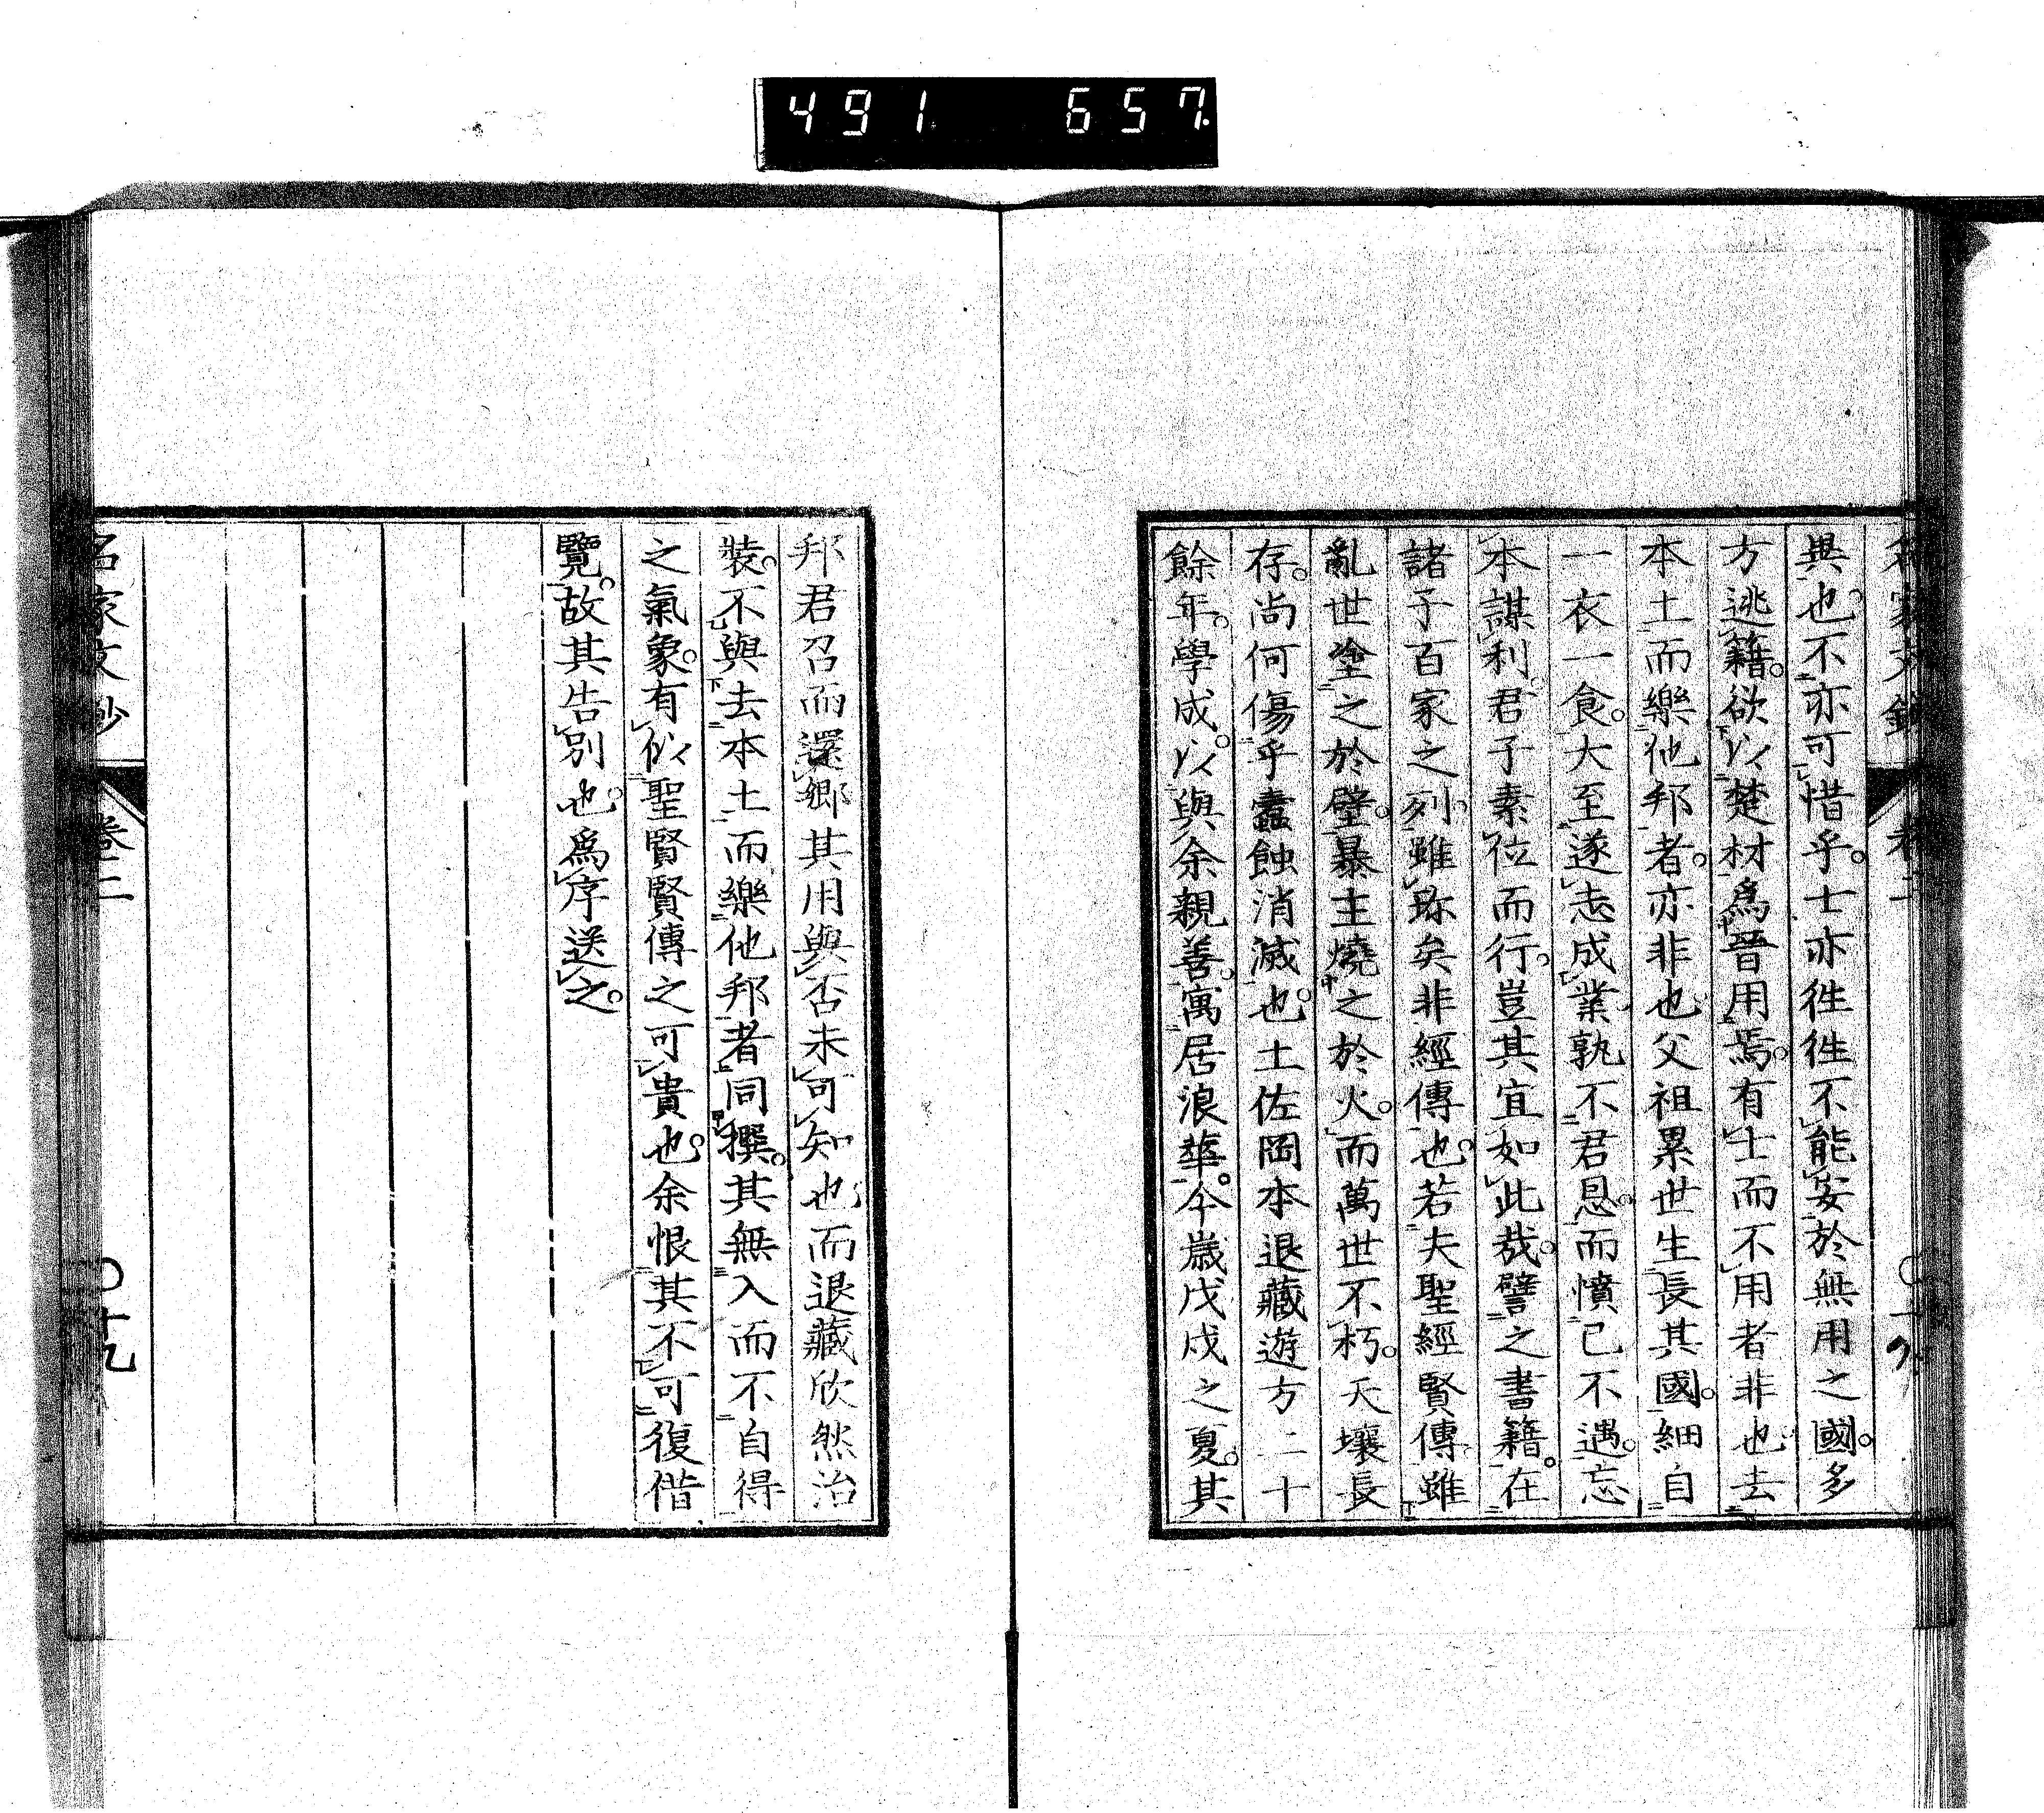 491 657
名家文鈔 卷二 〇十九
與也。不亦可惜乎。士亦徃徃不能安於無用之國。多
方逃籍。欲以楚材爲晉用焉。有士而不用者非也去
本土而樂他邦者。亦非也父祖累世生長其國。細自
一衣一食。大至遂志成業孰不君恩。而憤己不遇。忘
本謀利君子素位而行。豈其宜如此哉。譬之書籍。在
諸子百家之列。雖珎矣非經傳也。若夫聖經賢傳雖
亂世塗之於壁。暴主燒之於火。而萬世不朽。天壤長
存。尚何傷乎蠹蝕消滅也。土佐岡本退藏遊方二十
餘年。學成。以與余親善。寓居浪華。今歲戊戌之夏。其
邦君召而還鄉其用與否未可知也而退藏欣然治
裝。不與去本土而樂他邦者同撰。其無入而不自得
之氣象。有似聖賢賢傳之可貴也。余恨其不可復借
覽。故其告別也。爲序送之。
名家文鈔 卷二 〇十九